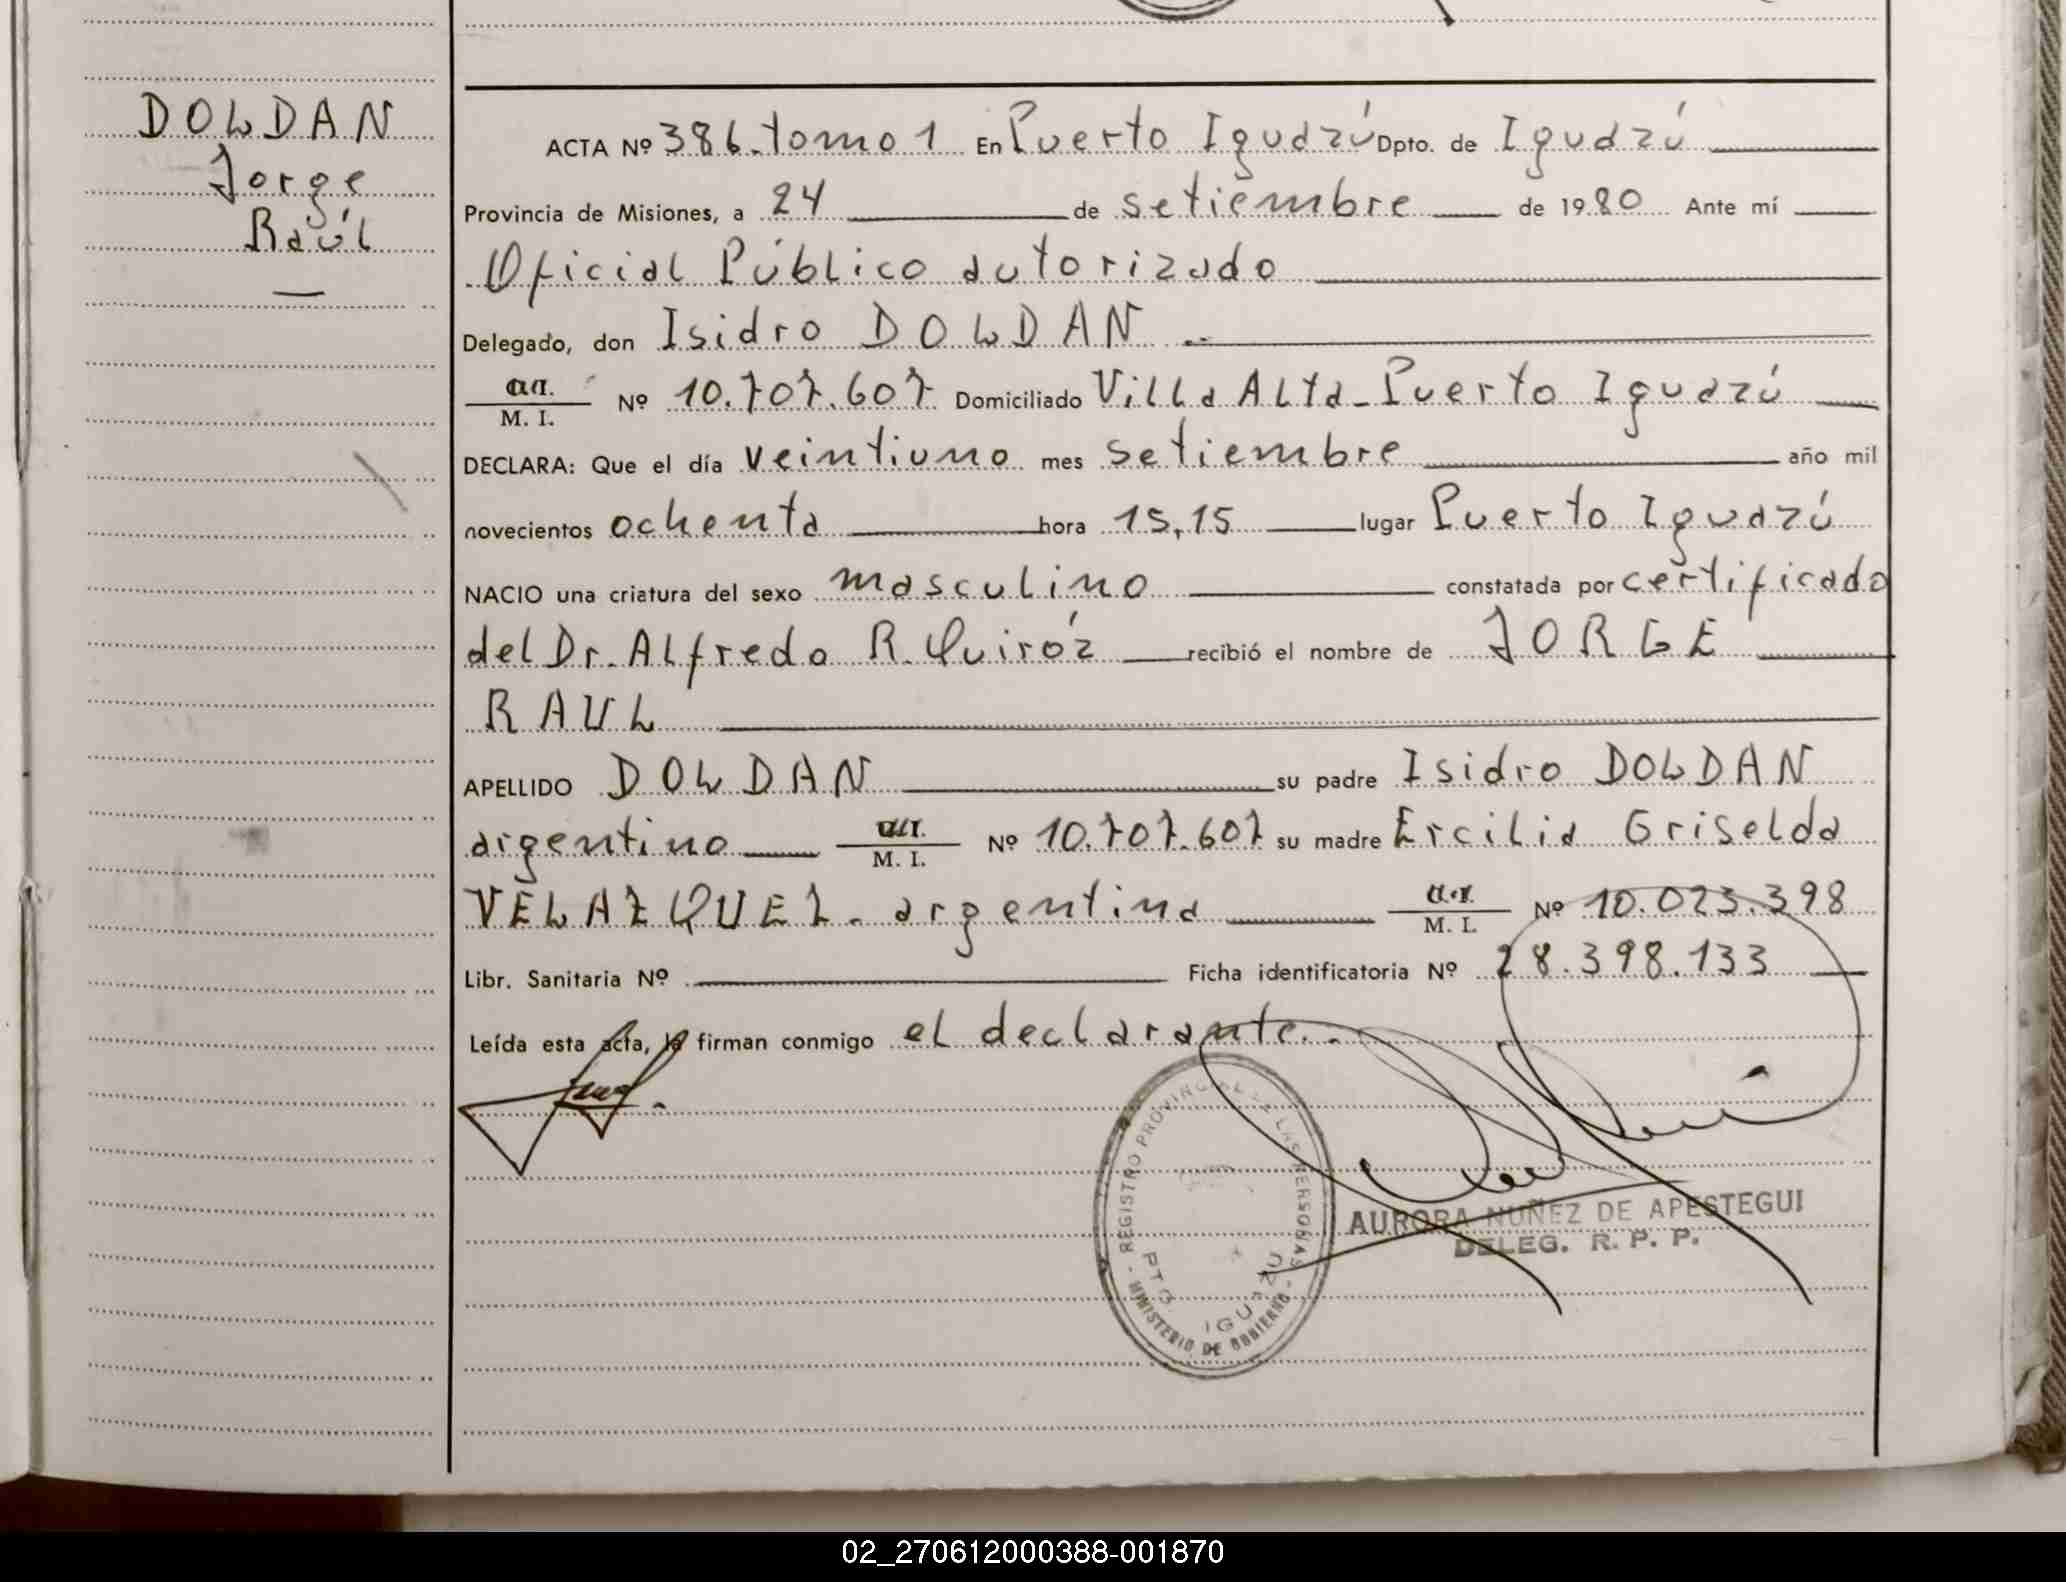 DOLDAN
Jorge
Raúl
ACTA Nº 386.tomo 1 En Puerto Iguazú Dpto. de Iguazú
Provincia de Misiones, a 24 de setiembre de 1980 Ante mí
Oficial Público autorizado
Delegado, don Isidro DOLDAN
M. I. Nº 10.707.607 Domiciliado Villa Alta - Puerto Iguazú
DECLARA: Que el día veintiuno mes setiembre año mil
novecientos ochenta hora 15,15 lugar Puerto Iguazú
NACIO una criatura del sexo masculino constatada por certificado
del Dr. Alfredo R. Quiróz recibió el nombre de JORGE
RAUL
APELLIDO DOLDAN su padre Isidro DOLDAN
argentino M. I. Nº 10.707.607 su madre Ercilia Griselda
VELAZQUEZ. argentina M. I. Nº 10.023.398
Libr. Sanitaria Nº Ficha identificatoria Nº 28.398.133
Leída esta acta, la firman conmigo el declarante.
- REGISTRO PROVINCIAL DE LAS PERSONAS -
MINISTERIO DE GOBIERNO
PTO IGUAZU
AURORA NUÑEZ DE APESTEGUI
DELEG. R. P. P.
02_270612000388-001870